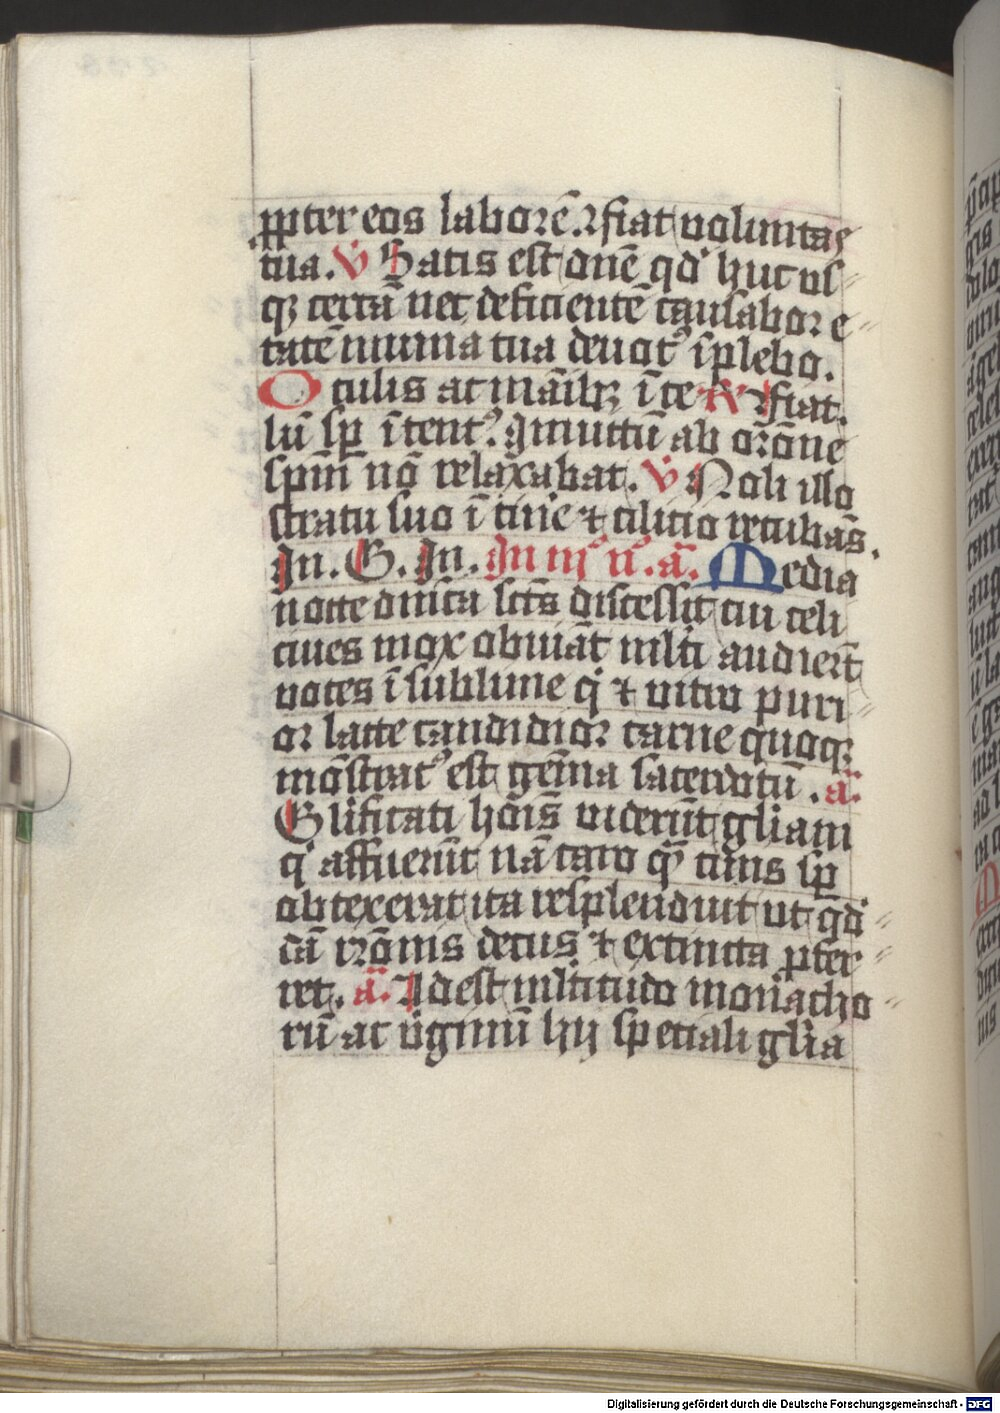 ꝓpter eos laborē. ⁊ fiat voluntas
tua. V̄ Satis est dn̄e qd' huc vs
qꝫ certā nec deficientē causabor e
tatē munia tua deuotꝰ īplebo.
Oculis ac manībꝫ ī ce R̄ fiat.
lū sp̄ ītentꝰ. Inuictū ab or̄one
spm̄ nō relaxabat. V̄ Noli illo
stratu suo ī cine ⁊ cilicio recubās.
In. G. In. In iijꝰ nꝰ. a. Media
nocte dn̄ica sc̄ts discessit cui celi
ciues mox obuiāt ml̄ti audiert̄
voces ī sublime qͥ ⁊ vitro puri
or lacte candidior carne quoqꝫ
mōstratꝰ est gēma sacerdotū. a.
Glificati hōis viderūt gliam
qͥ affuerūt nā caro qͣ̄ cinis sp̄
obtexerat ita resplenduit ut qd'
dā r̄romis decus ⁊ extincta ꝓfer
ret. a. Adest ml̄titudo monacho
rū ac v̓ginū hij speciali gl̄ia
Digitalisierung gefördert durch die Deutsche Forschungsgemeinschaft - DFG